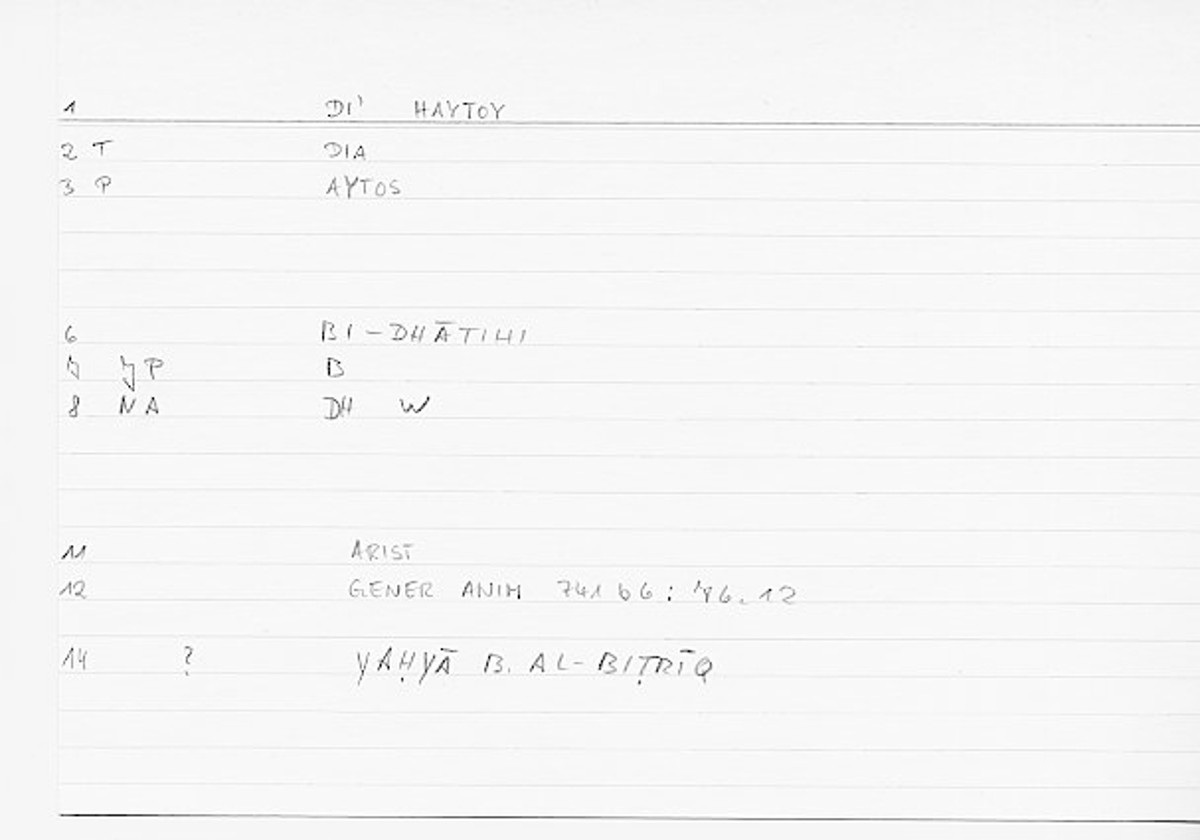 1 DI' HAYTOY
2 T DIA
3 P AYTOS
6 BI-DHĀTIHI
7 JP B
8 NA DH W
11 ARIST
12 GENER ANIM 741 b6: 86.12
14 ? YAḤYĀ B. AL-BIṬRĪQ